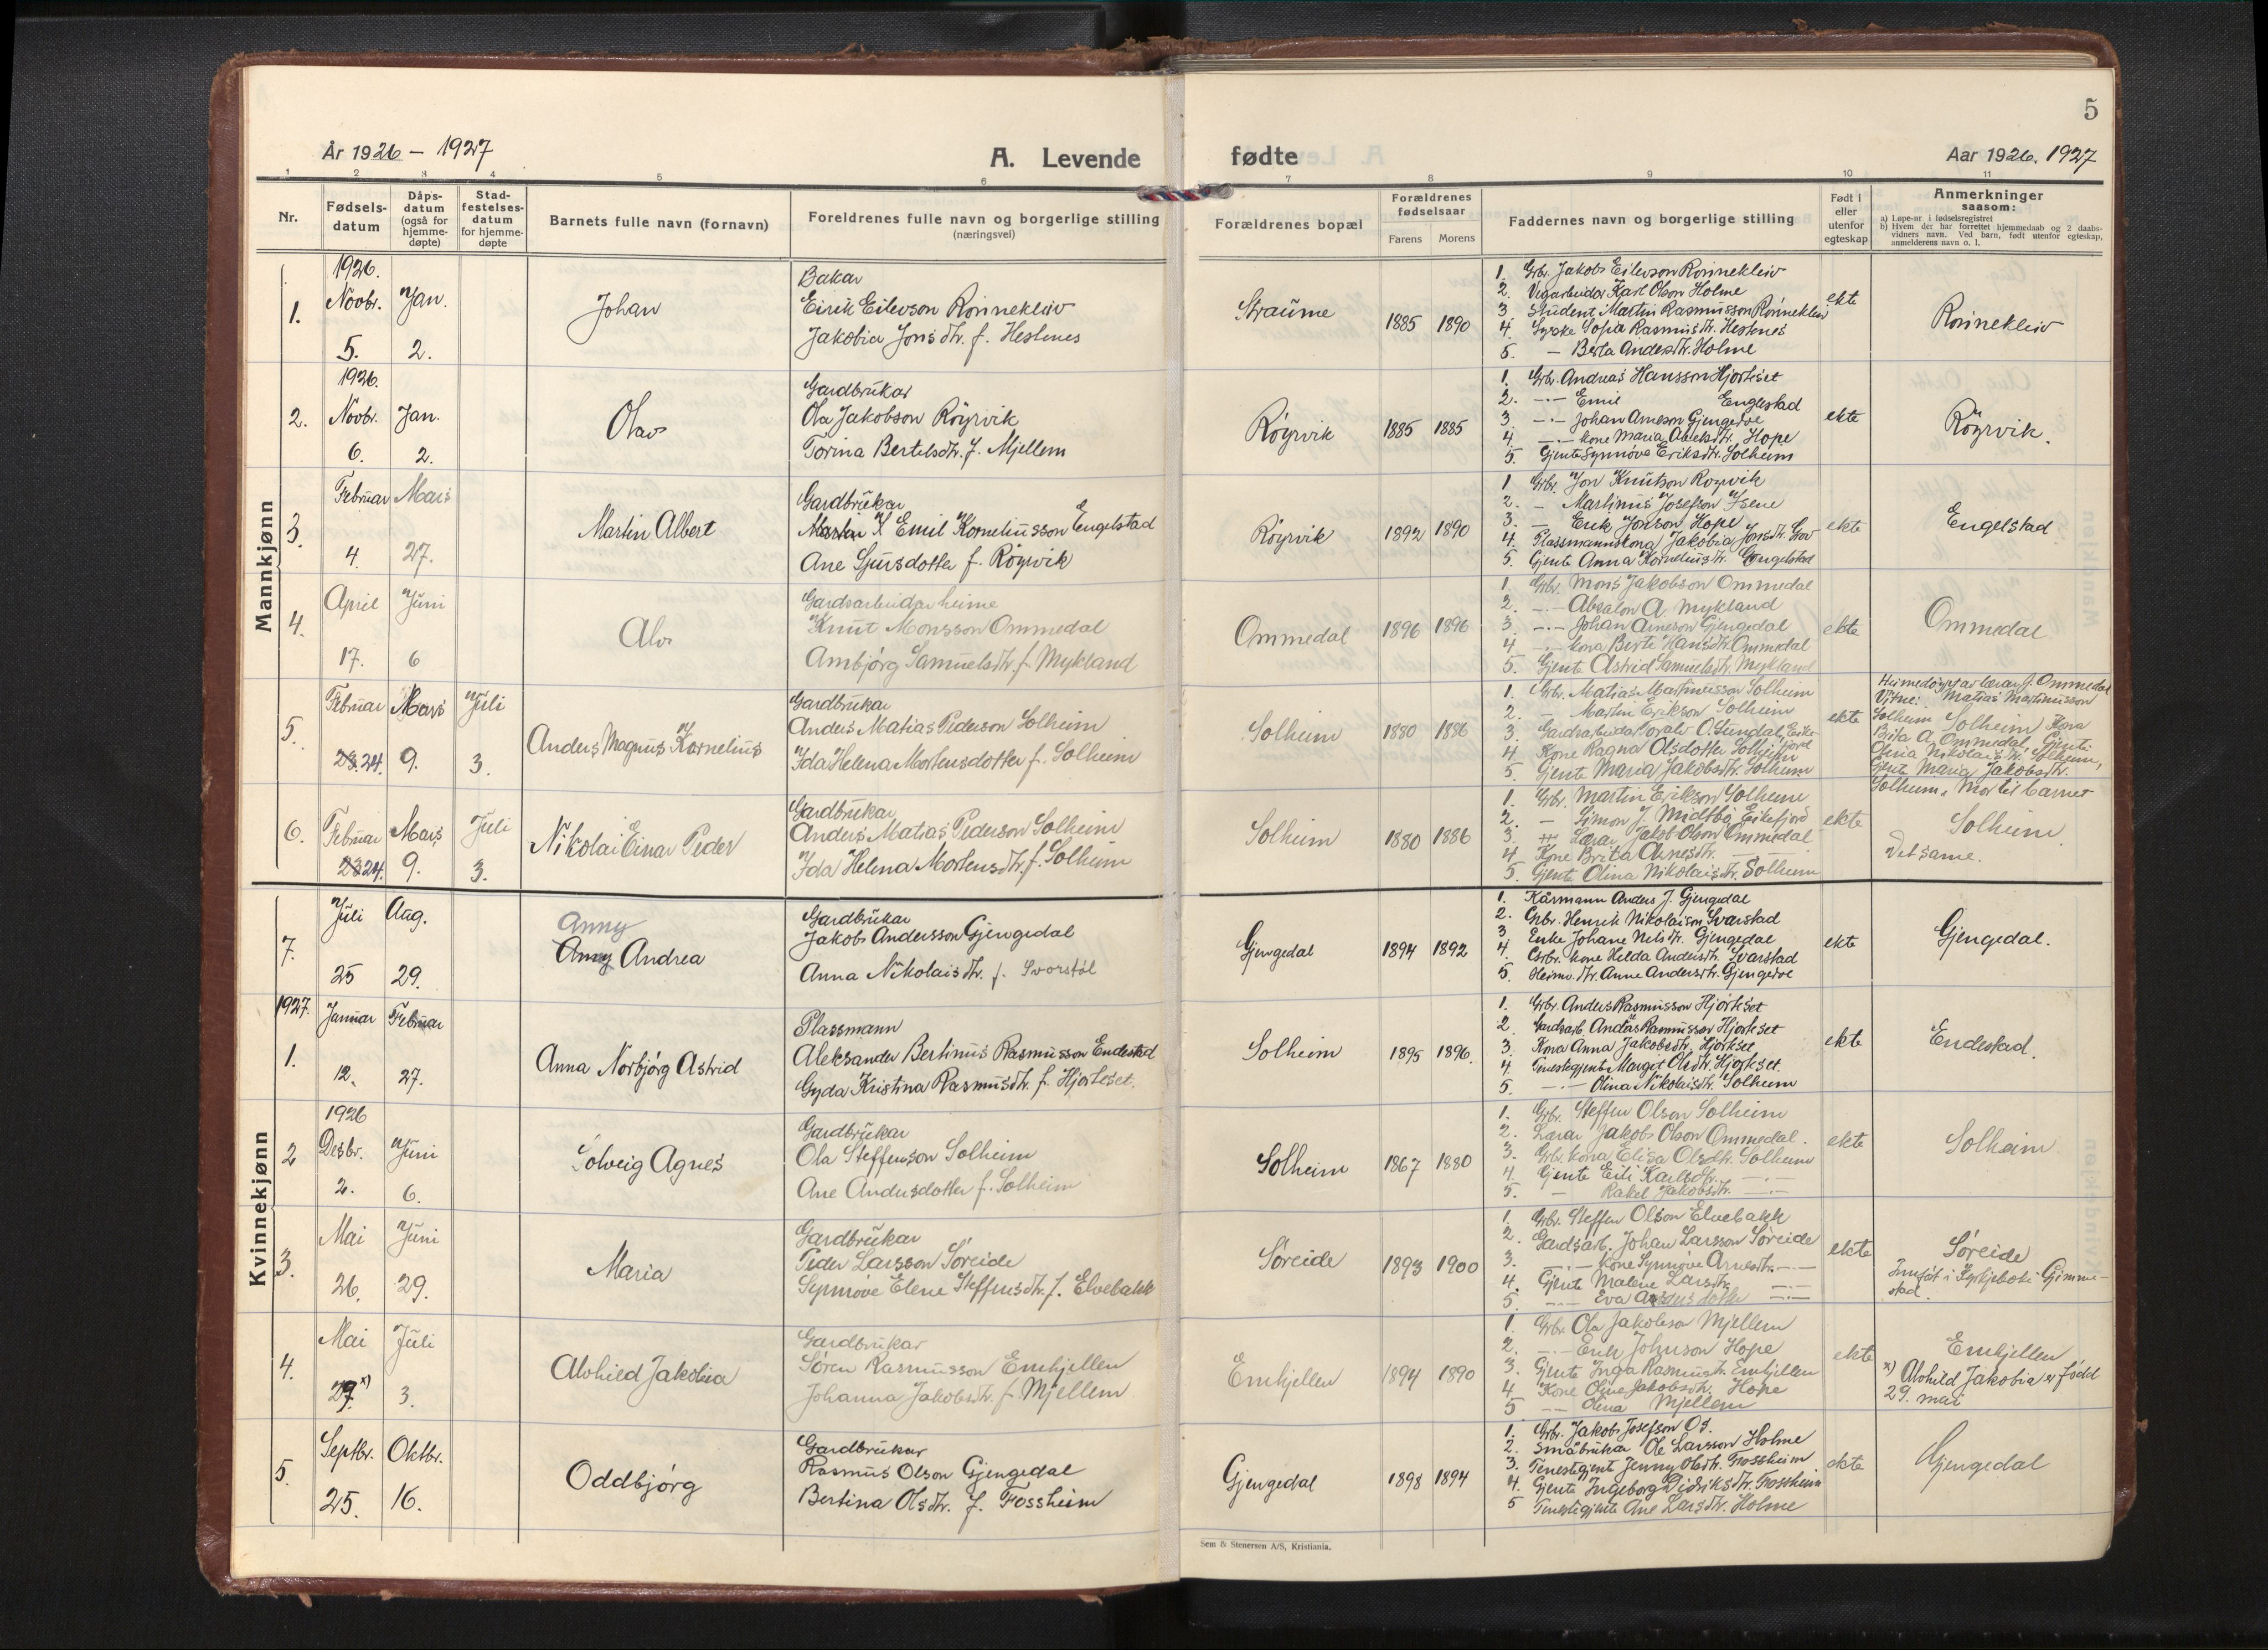 5
År 1926 – 1927
A. Levende
fødte
Aar 1926. 1927
1 2 3 4 5 6 7 8 9 10 11
Nr.
Fødsels-
datum
Dåps-
datum
(også for
hjemme-
døpte)
Stad-
festelses-
datum
for hjemme-
døpte
Barnets fulle navn (fornavn)
Foreldrenes fulle navn og borgerlige stilling
(næringsvei)
Forældrenes bopæl
Forældrenes
fødselsaar
Farens Morens
Faddernes navn og borgerlige stilling
Født i
eller
utenfor
egteskap
Anmerkninger
saasom:
a) Løpe-nr. i fødselsregistret
b) Hvem der har forrettet hjemmedaab og 2 daabs-
vidners navn. Ved barn, født utenfor egteskap,
anmelderens navn o. l.
Mannkjønn
1.
1926.
Novbr.
5.
Jan.
2.
Johan
Bakar
Eirik Eilevson Rönnekleiv
Jakobia Jonsdtr. f. Hestnes
Straume
1885 1890
1. Grbr. Jakob Eilevson Rönnekleiv
2. Vegarbeidar Karl Olson Holme
3. Student Martin Rasmusson Rönnekleiv
4. Syske Sofie Rasmusdtr. Hestnes
5. — Berta Andersdtr. Holme
ekte
Rönnekleiv
2.
1926.
Novbr.
6.
Jan.
2.
Olav
Gardbrukar
Ola Jakobson Röyrvik
Torina Bertelsdtr. f. Mjellem
Röyrvik
1885 1885
1. Grbr. Andreas Hansson Hjorteset
2. —·— Emil Engelstad
3. —·— Johan Arneson Gjengedal
4. —·— kone Maria Abelsdtr. Hope
5. Gjente Synnøve Eriksdtr. Solheim
ekte
Röyrvik.
3.
Februar
4.
Mars
27.
Martin Albert
Gardbrukar
Martin K Emil Korneliusson Engelstad
Ane Sjursdotter f. Röyrvik
Röyrvik
1892 1890
1. Grbr. Jon Knutson Royrvik
2. — Martinus Josefson Isene
3. — Erik Jonson Hope
4. Plassmannskona Jakobia Jonsdtr.
5. Gjente Anna Korneliusdtr. Engelstad
ekte
Engelstad
4.
April
17.
Juni
6
Alv
Gardsarbeidar heime
Knut Monsson Ommedal
Ambjörg Samuelsdtr. f. Mykland
Ommedal
1896 1896
1. Grbr. Mons Jakobson Ommedal
2. —·— Absalon A. Mykland
3. —·— Johan Arneson Gjengedal
4. —·— kona Berte Hansdtr. Ommedal
5. Gjente Astrid Samuelsdtr. Mykland
ekte
Ommedal
5.
Februar
23. 24.
Mars
9.
Juli
3.
Anders Magnus Kornelius
Gardbrukar
Anders Matias Pederson Solheim
Ida Helena Mortensdotter f. Solheim
Solheim
1880 1886
1. Grbr. Matias Martinusson Solheim
2. — Martin Erikson Solheim
3. Gardsarbeidar O. Stendal, Eike-
fjord
4. Kone Ragna Olsdotter Solheim
5. Gjente Maria Jakobsdtr. Solheim
ekte
Heimedöypt av lærar J. Ommedal
Vitne: Matias Martinusson
Solheim Solheim Kona
Brita A. Ommedal, Gjente
Olina Nikolaisdtr. Solheim,
Gjente Maria Jakobsdtr.
Solheim, Mor til barnet
6.
Februar
23 24.
Mars
9.
Juli
3.
Nikolai Einar Peder
Gardbrukar
Anders Matias Pederson Solheim
Ida Helena Mortensdtr. f. Solheim
Solheim
1880 1886
1. Grbr. Martin Erikson Solheim
2. — Simon J. Midtbø, Eikefjord
3. Lærar Jakob Olson Ommedal
4. Kone Brita Arnesdtr. —
5. Gjente Olina Nikolaisdtr. Solheim
ekte
Solheim.
Det same.
Kvinnekjønn
7.
Juli
25
Aug.
29.
Anny
Anny Andrea
Gardbrukar
Jakob Andersson Gjengedal
Anna Nikolaisdtr. f. Svorstöl
Gjengedal
1894 1892
1. Kårmann Anders J. Gjengedal
2. Grbr. Henrik Nikolaison Svarstad
3. Enke Johane Nilsdtr. Gjengedal
4. Grbr. kone Helda Andersdtr. Svarstad
5. Heimv. dtr. Anne Andersdtr. Gjengedal
ekte
Gjengedal.
1927.
1.
Januar
12.
Februar
27.
Anna Norbjörg Astrid
Plassmann
Aleksander Bertinus Rasmusson Endestad
Gyda Kristina Rasmusdtr. f. Hjorteset.
Solheim
1895 1896.
1. Grbr. Anders Rasmusson Hjorteset
2. Gardsarb. Andreas Rasmusson Hjorteset
3. Kona Anna Jakobsdtr. Hjorteset
4. Tenestegjente Margit Olsdtr. Hjorteset.
5. —·— Olina Nikolaisdtr. Solheim
ekte
Endestad.
2
1926
Desbr.
2.
Juni
6.
Solveig Agnes
Gardbrukar
Ola Steffenson Solheim
Ane Andersdotter f. Solheim
Solheim
1867 1880
1. Grbr. Steffen Olson Solheim
2. Lærar Jakob Olson Ommedal.
3. Grbr. kona Elisa Olsdtr. Solheim
4. Gjente Eili Karlsdtr. —·—
5. — Rakel Jakobsdtr. —·—
ekte
Solheim
3.
Mai
26.
Juni
29.
Maria
Gardbrukar
Peder Larsson Söreide
Synnöve Elene Steffensdtr. f. Elvebakk
Söreide
1893 1900
1. Grbr. Steffen Olson Elvebakk
2. Gardsarb. Johan Larsson Söreide
3. —·— kone Synnöve Arnesdtr. —·—
4. Gjente Malene Larsdtr. —·—
5. —·— Eva Andersdotter —·—
ekte
Söreide
Innført i Kyrkjebok Gimme-
stad.
4.
Mai
27. x)
Juli
3.
Alvhild Jakobia
Gardbrukar
Sören Rasmusson Emhjellen
Johanna Jakobsdtr. f. Mjellem.
Emhjellen
1894 1890
1. Grbr. Ola Jakobson Mjellem
2. —·— Erik Johnson Hope
3. Gjente Inga Rasmusdtr. Emhjellen
4. Kone Oline Jakobsdtr. Hope
5 —— Olina Mjellem
ekte
Emhjellen
x) Alvhild Jakobia er född
29. mai
5.
Septbr.
25.
Oktbr.
16.
Oddbjörg
Gardbrukar
Rasmus Olson Gjengedal
Bertina Olsdtr. f. Fossheim
Gjengedal
1898 1894
1. Grbr. Jakob Josefson Os.
2. Småbrukar Ole Larsson Holme
3. Tenestgjent Jenny Olsdtr. Fossheim
4. Gjente Ingeborg Didriksdtr. Fossheim
5 Tenestegjente Ane Larsdtr. Holme
ekte
Gjengedal
Sem & Stenersen A/S, Kristiania.